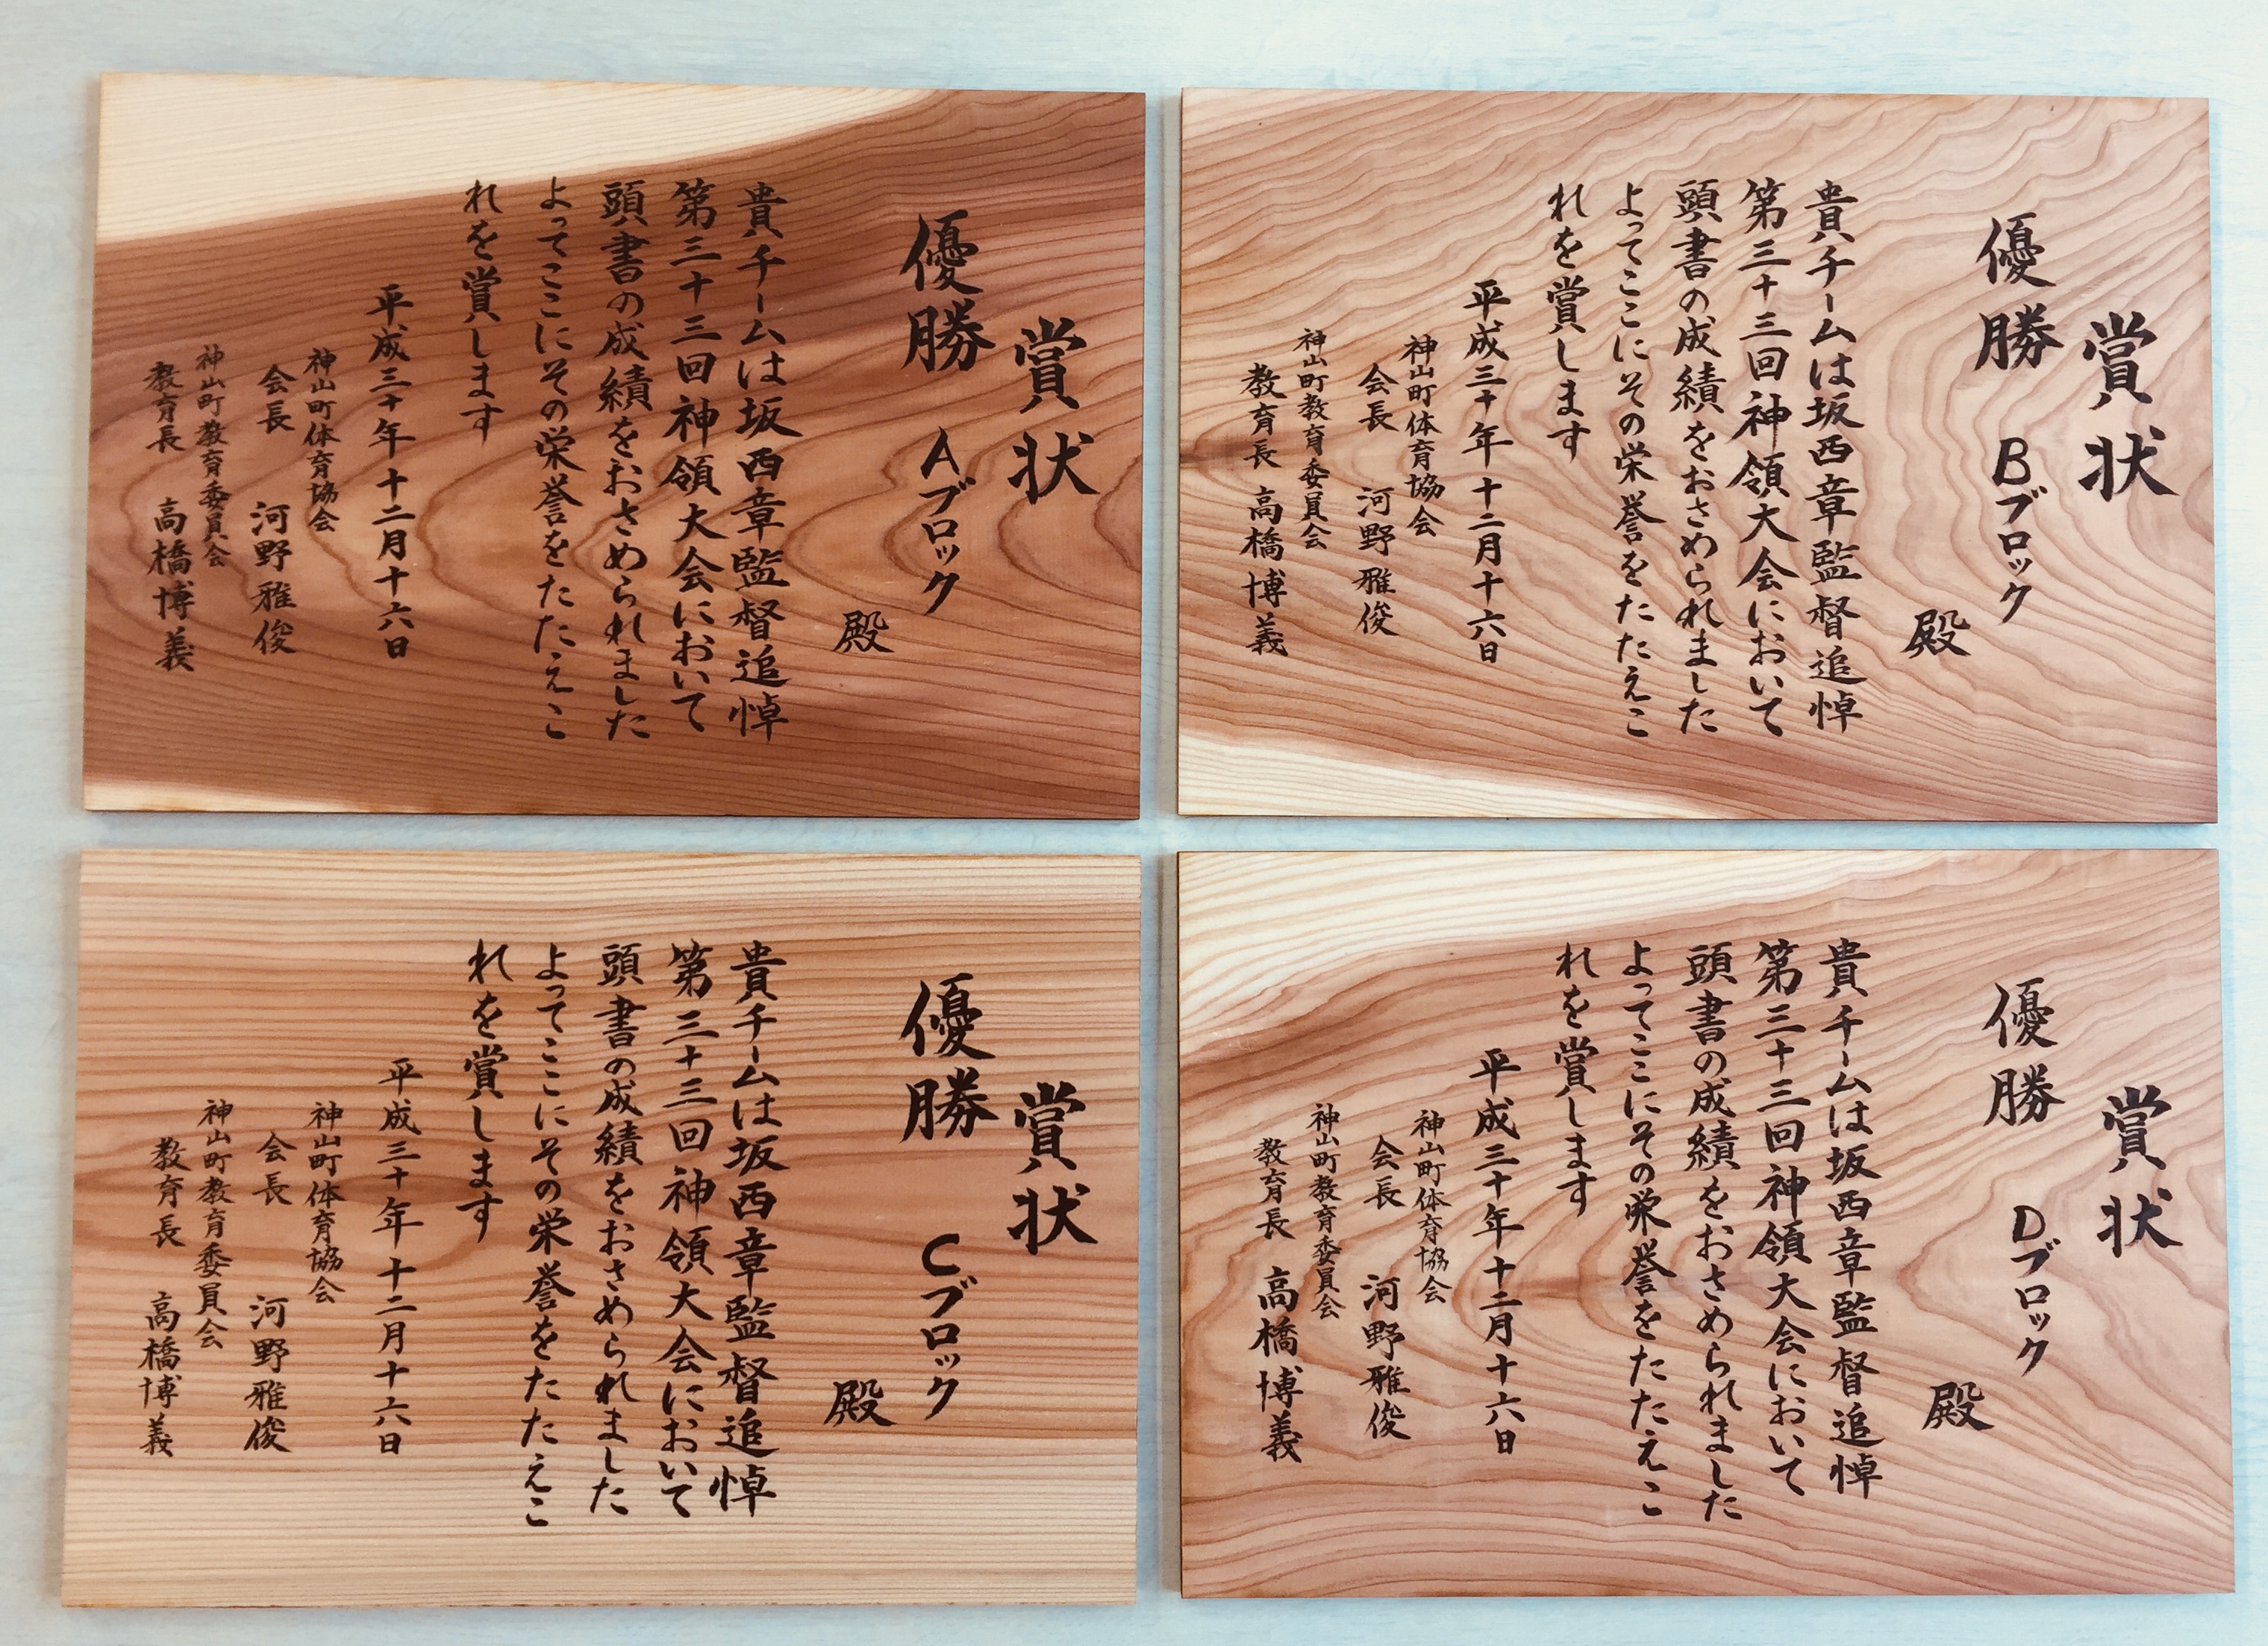 賞状
優勝 Aブロック
殿
貴チームは坂西章監督追悼
第三十三回神領大会において
頭書の成績をおさめられました
よってここにその栄誉をたたえこ
れを賞します
平成三十年十二月十六日
神山町体育協会
会長 河野雅俊
神山町教育委員会
教育長 高橋博義
賞状
優勝 Bブロック
殿
貴チームは坂西章監督追悼
第三十三回神領大会において
頭書の成績をおさめられました
よってここにその栄誉をたたえこ
れを賞します
平成三十年十二月十六日
神山町体育協会
会長 河野雅俊
神山町教育委員会
教育長 高橋博義
賞状
優勝 Cブロック
殿
貴チームは坂西章監督追悼
第三十三回神領大会において
頭書の成績をおさめられました
よってここにその栄誉をたたえこ
れを賞します
平成三十年十二月十六日
神山町体育協会
会長 河野雅俊
神山町教育委員会
教育長 高橋博義
賞状
優勝 Dブロック
殿
貴チームは坂西章監督追悼
第三十三回神領大会において
頭書の成績をおさめられました
よってここにその栄誉をたたえこ
れを賞します
平成三十年十二月十六日
神山町体育協会
会長 河野雅俊
神山町教育委員会
教育長 高橋博義